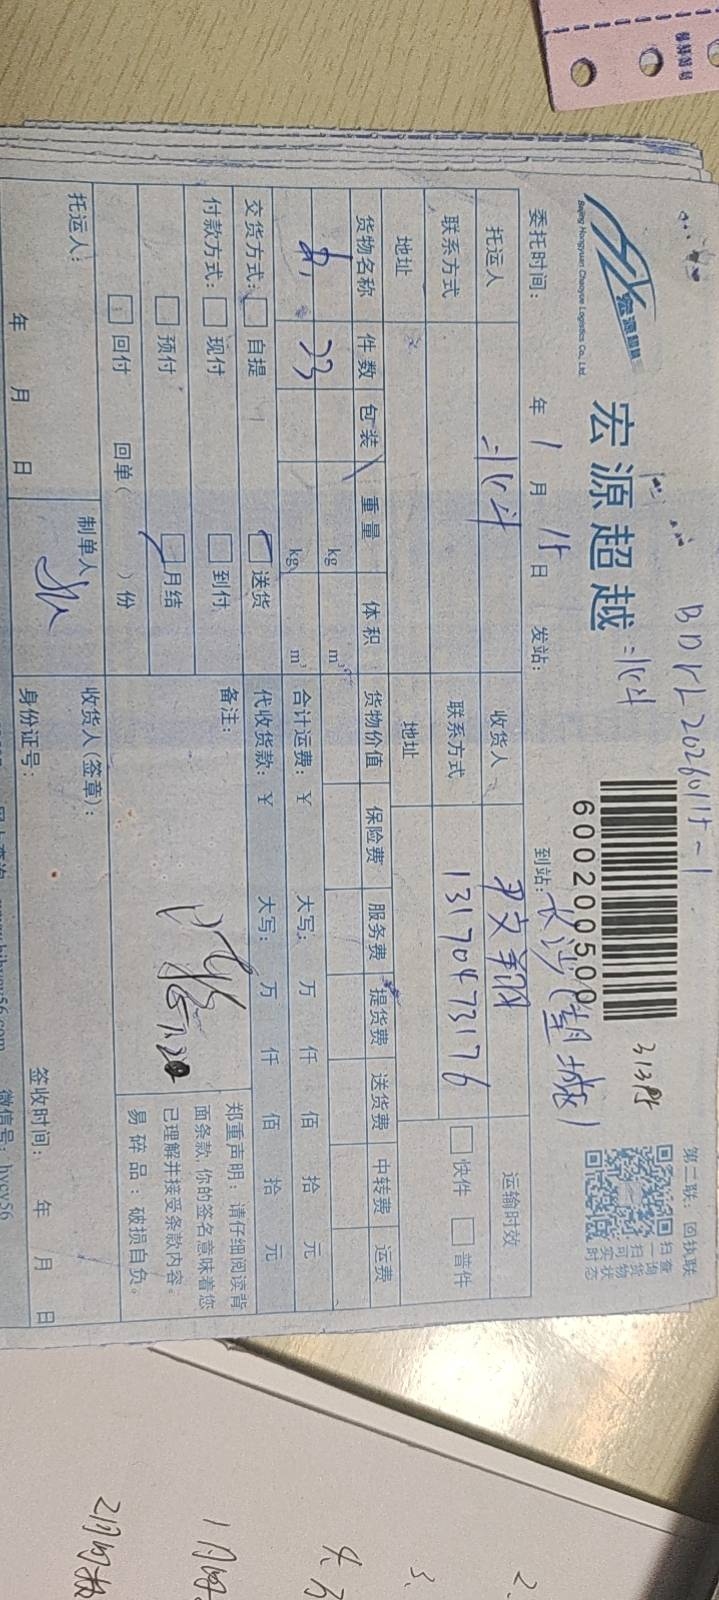 BDYL20260115-1
宏源超越
Beijing Hongyuan Chaoyue Logistics Co., Ltd.
宏源超越
北斗
600200500
313件
第二联：回执联
扫查一询扫货可物实状时态
委托时间： 年 1 月 15 日 发站： 到站：长沙(望城)
托运人 北斗 收货人 尹文翔 运输时效
联系方式 联系方式 13170473176 快件 普件
地址 地址
货物名称 件数 包装 重量 体积 货物价值 保险费 服务费 提货费 送货费 中转费 运费
kg m³
33 kg m³ 合计运费：￥ 大写： 万 仟 佰 拾 元
交货方式： 自提 送货 代收货款：￥ 大写： 万 仟 佰 拾 元
付款方式： 现付 到付 备注：
预付 月结
回付 回单( )份
郑重声明：请仔细阅读背
面条款,你的签名意味着您
已理解并接受条款内容。
易碎品：破损自负。
托运人： 制单人 收货人(签章)：
年 月 日 身份证号： 签收时间： 年 月 日
微信号：hycy56
2.
3.
1月
2月